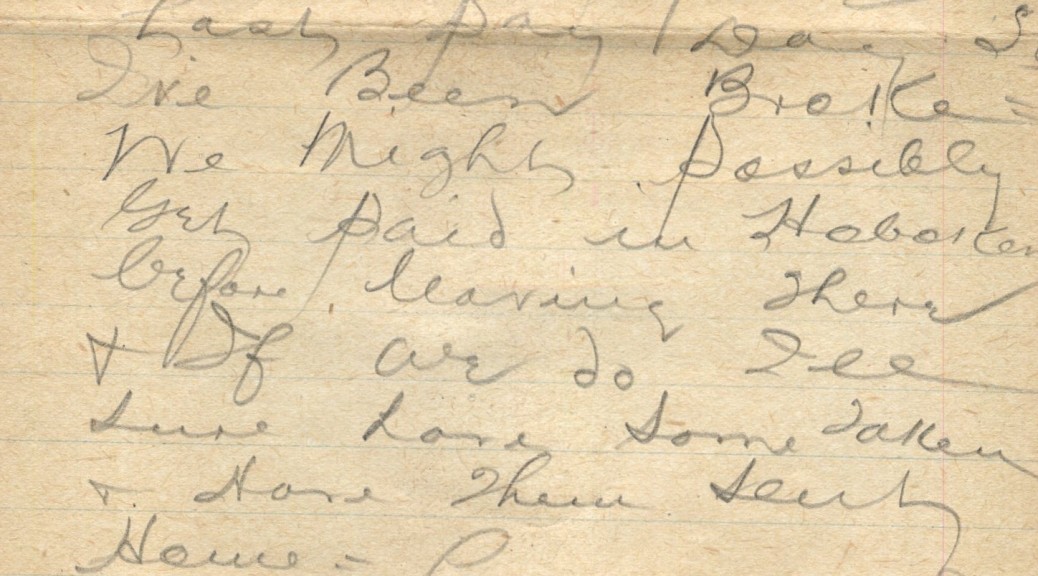 Last Pay Day
I've Been Broke =
We Might Possibly
Get Paid in Hoboken
before leaving There
+ If we do Ill
sure have some Taken
+ Have Them sent
Home -